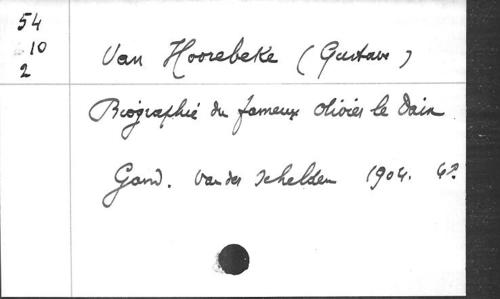 54
10
2
Van Hoorebeke (Gustave)
Biographie du fameux Olivier le Dain
Gand. Van der Schelden 1904. 4º.